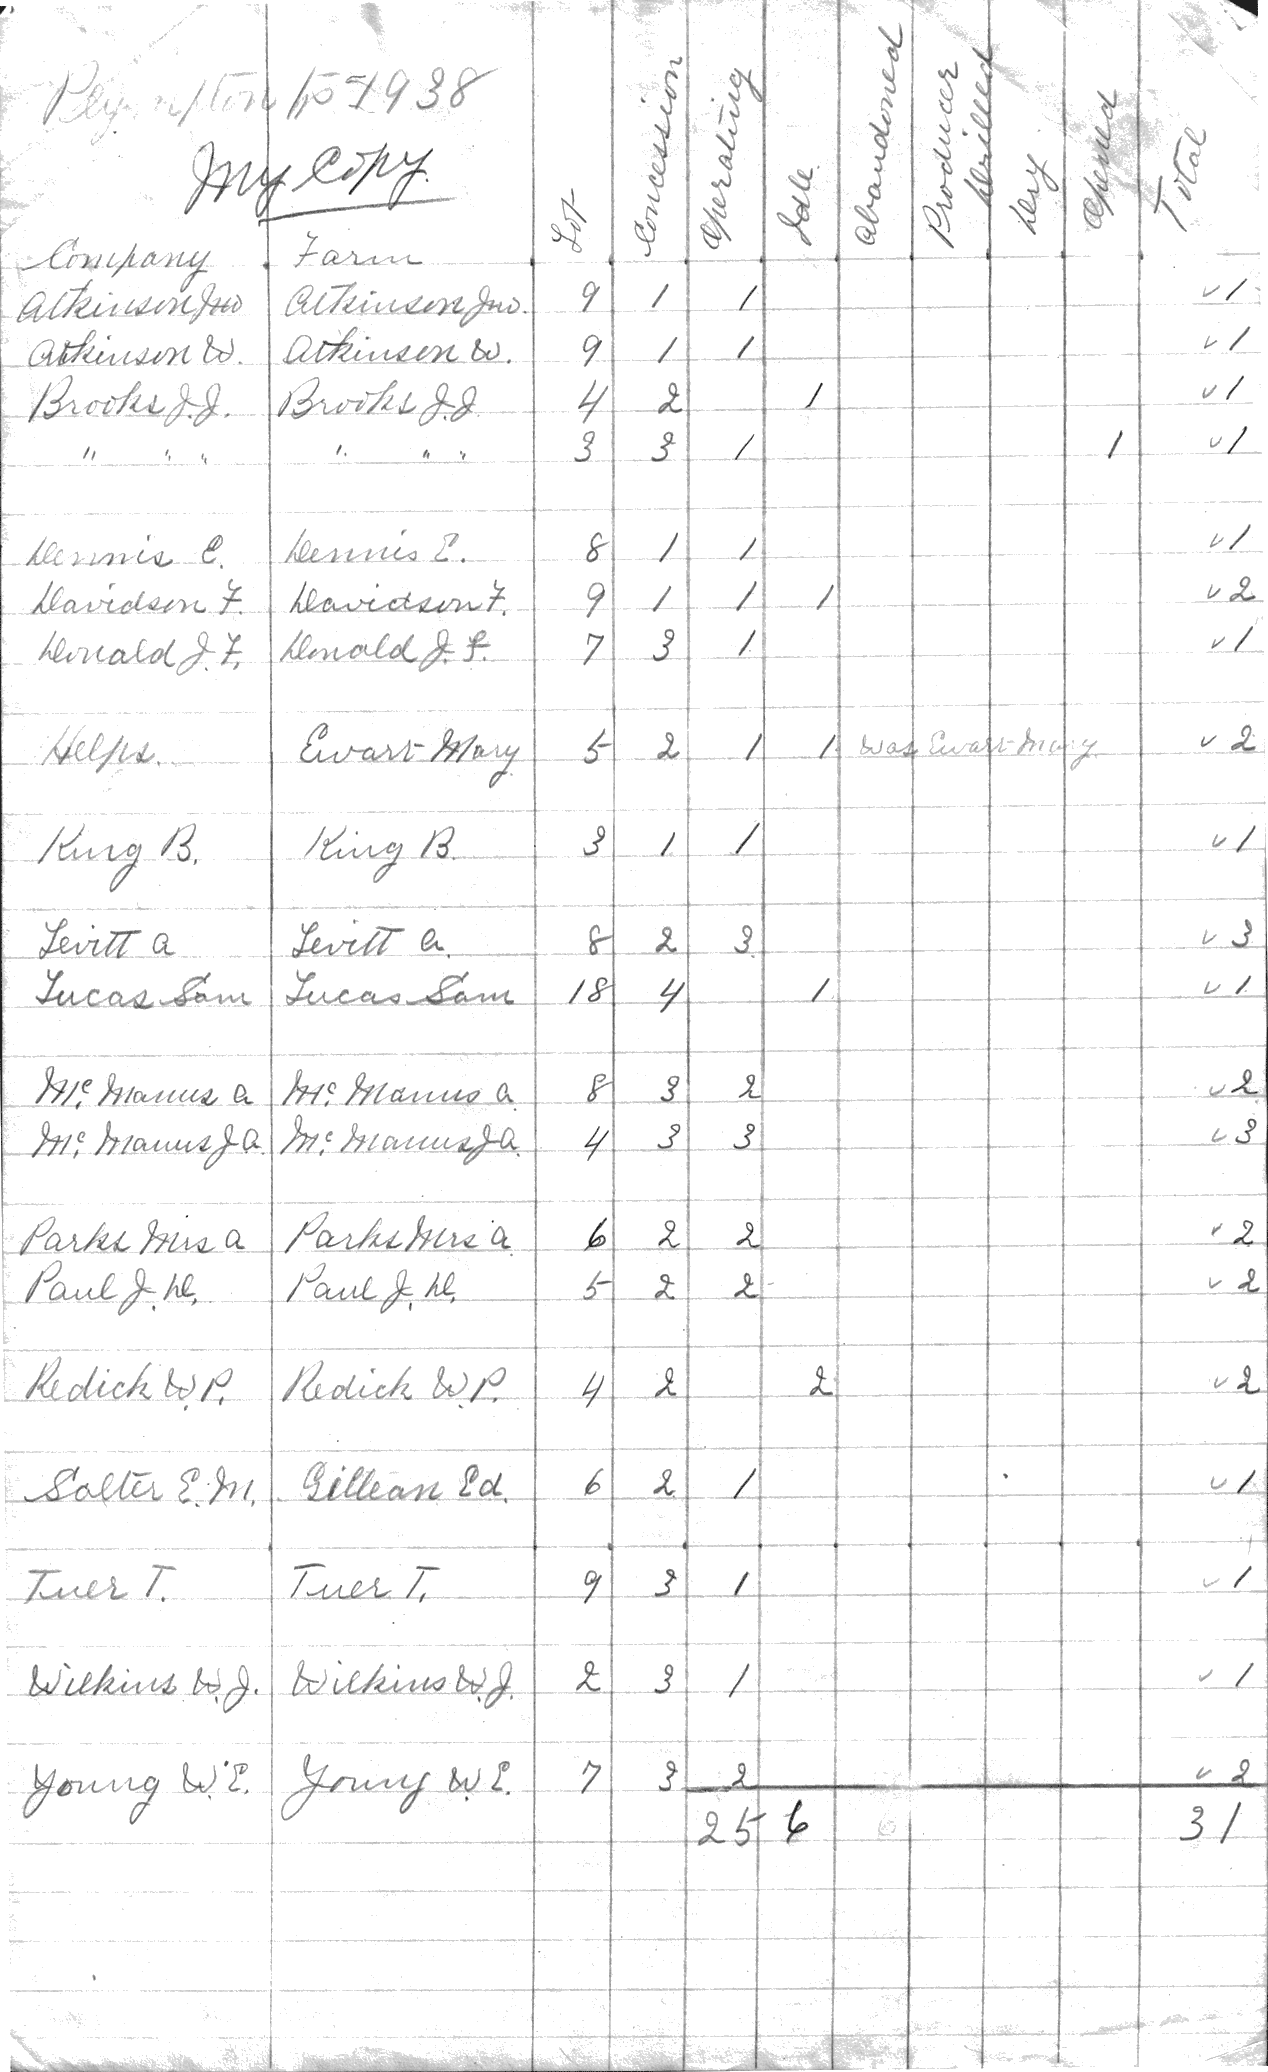 Plympton 1938
My Copy
Company Farm Lot Concession Operating Idle Abandoned Producer Drilled Dry Opened Total
Atkinson Jno Atkinson Jno. 9 1 1 ✓1
Atkinson W. Atkinson W. 9 1 1 ✓1
Brooks J.J. Brooks J.J 4 2 1 ✓1
" " " " " " 3 3 1 1 ✓1
Dennis E. Dennis E. 8 1 1 ✓1
Davidson F. Davidson F. 9 1 1 1 ✓2
Donald J.F. Donald J.F. 7 3 1 ✓1
Helps. Ewart Mary 5 2 1 1 Was Ewart Mary ✓2
King B. King B. 3 1 1 ✓1
Levitt A Levitt A. 8 2 3 ✓3
Lucas Sam Lucas Sam 18 4 1 ✓1
Mc. Manus A Mc. Manus A 8 3 2 ✓2
Mc. Manus J A Mc. Manus J A. 4 3 3 ✓3
Parks Mrs A Parks Mrs A 6 2 2 ✓2
Paul J. D. Paul J. D. 5 2 2 ✓2
Redick W.P. Redick W.P. 4 2 2 ✓2
Salter E.M. Gillean Ed. 6 2 1 ✓1
Tuer T. Tuer T. 9 3 1 ✓1
Wilkins W.J. Wilkins W.J. 2 3 1 ✓1
Young W.E. Young W.E. 7 3 2 ✓2
25 6 31